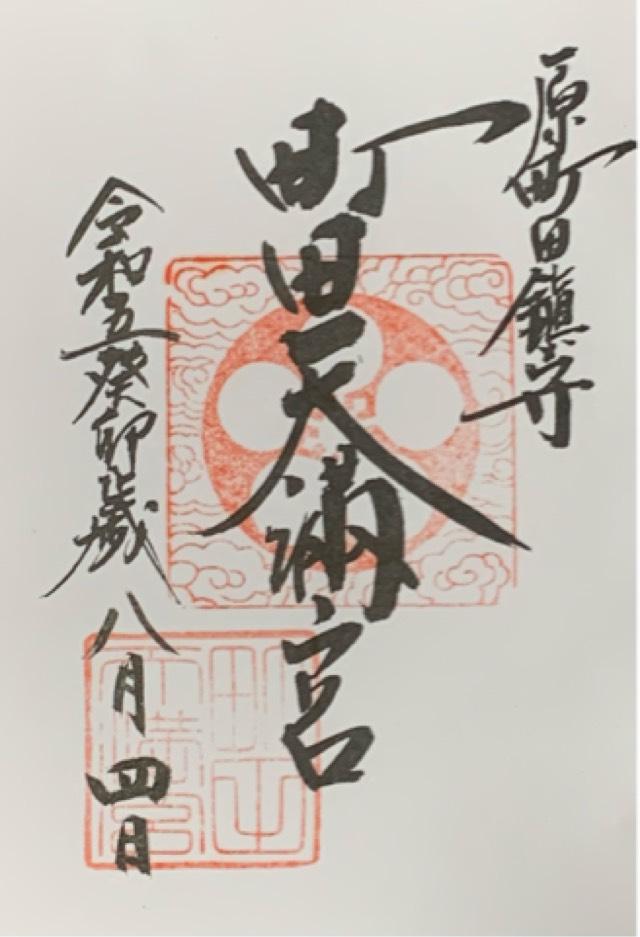 原町田鎮守
町田天満宮
令和五癸卯歳八月四日
町田天満宮